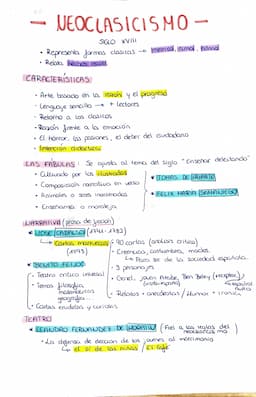 → NEOCLASICISMO -
SIGLO XVIII
• Representa formas clásicas →
• Relata hechos
CARACTERÍSTICAS:
• Arte basado en la razón y el progreso
• Lenguaje sencillo → + lectores
• Retorno a los clásicos
• Razón frente a la emoción
• El honor, las pasiones, el deber del ciudadano
• Intención didáctica
LAS FÁBULAS: Se ajusta al tema del siglo "Enseñar deleitando"
• Cultivado por los ilustrados
• Composición narrativa en verso
• Animales o seres inanimados
• Enseñanza o moraleja
• TOMÁS DE IRIARTE
• FELIX MARIA SAMANIEGO
NARRATIVA (prosa de ficción)
• JOSÉ CADALSO (1741-1782)
↳ Cartas marruecas
(1793)
• 90 cartas (análisis crítico)
• Creencias, costumbres, modales
↳ de la sociedad española
• 3 personajes
Gazel, Ben Beley
• Relatos + anécdotas / Humor + ironía
• BENITO FEIJOO
• Teatro crítico universal
• Temas filosofía,
matemáticas
geografía...
• Cartas eruditas y curiosas
TEATRO
• LEANDRO FERNÁNDEZ DE MORATÍN (Fiel a las reglas del
neoclasicismo
• La defensa de elección de los jóvenes al matrimonio
↳ el sí de las niñas / El café